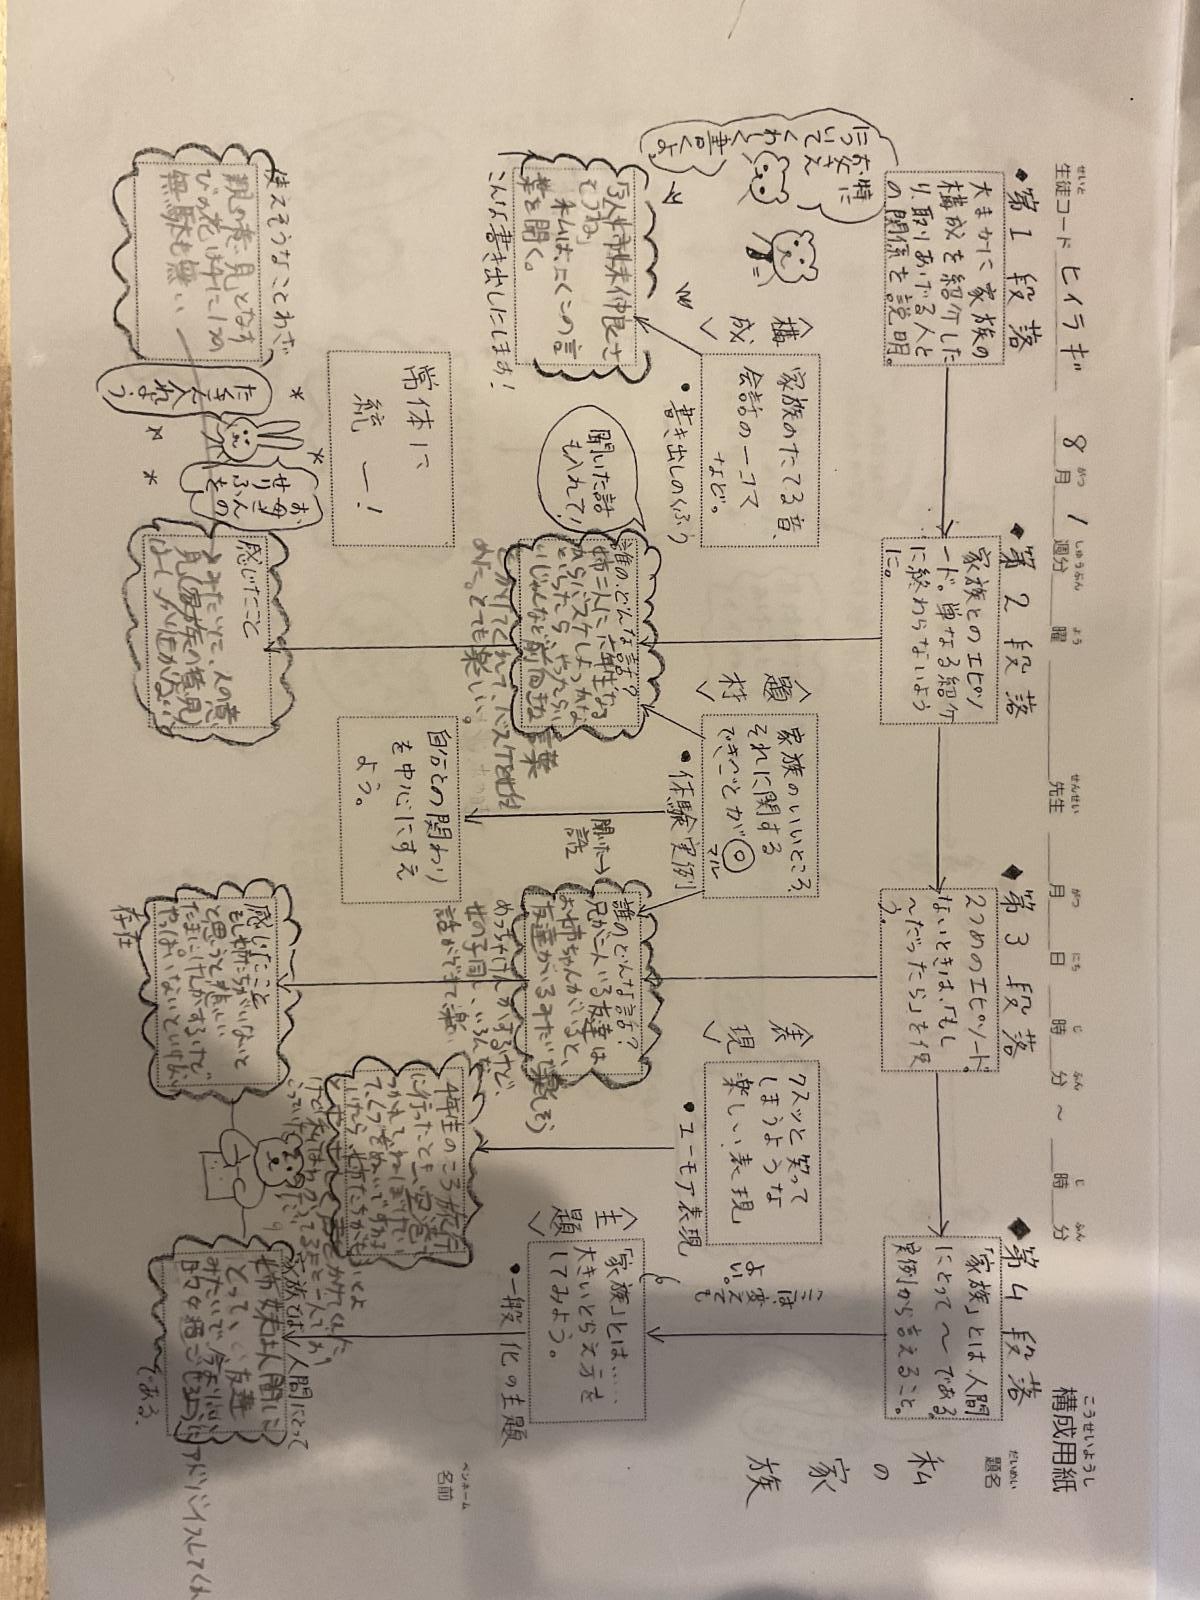 こうせいようし
構成用紙
せいと
生徒コード ヒイラギ 8月1週分 曜 先生 月 日 時 分 〜 時 分
がつ しゅうぶん よう せんせい がつ にち じ ふん じ ふん
だいめい
題名
私の家族
ペンネーム
名前
◆第1段落
大まかに家族の
構成を紹介した
り、取りあげる人と
の関係を説明。
特に
お姉さん
について
くわしく
書くよ。
〈構成〉
家族のたてる音、
会話の一コマ
など。
・書き出しのくふう
「3人姉妹仲良さ
そうね」
私はよくこの言
葉を聞く。
こんな書き出しにします!
常体に
統一!
使えそうなことわざ
親の意見となす
びの花は千に1つの
無駄も無い
たくさん
入れよう
お母さん
のせりふを
◆第2段落
家族とのエピソ
ード。単なる紹介
に終わらないよう
に。
〈題材〉
家族のいいところ、
それに関する
できごとが◎
マル
・体験実例
聞いた話
も入れて!
誰のどんな話?
姉二人に六年生なる
からバスケしよっかな
といったら やったらい
いじゃんなど前向きな言葉
をかけてくれて、バスケを始
めた。とても楽しい。
自分との関わり
を中心にすえ
よう。
感じたこと
◆第3段落
2つめのエピソード。
ないときは、「もし
〜だったら」を使
う。
〈表現〉
クスッと笑って
しまうような
楽しい表現
・ユーモア表現
聞いた
話
誰のどんな話?
兄が二人いる友達は
お姉ちゃんがいると、
友達がいるみたいで楽しそう
めっちゃけんかするけど、
女の子同士、いろんな
話ができて楽しい
4年生のころ旅行
に行ったとき、空港で
感じたこと
もし姉たちがいないと
と思うと悲しい
たまにけんかするけど
やっぱいないといけない
存在
◆第4段落
「家族」とは人間
にとって〜である
実例から言えること。
ことばは、
変えても
よい。
〈主題〉
「家族」とは……
大きいとらえ方を
してみよう。
・一般化の主題
家族とは人間にとって
姉妹は人間に
とっていい友達
みたいで、今より
日々を過ごせる
である。
アドバイスしてくれ